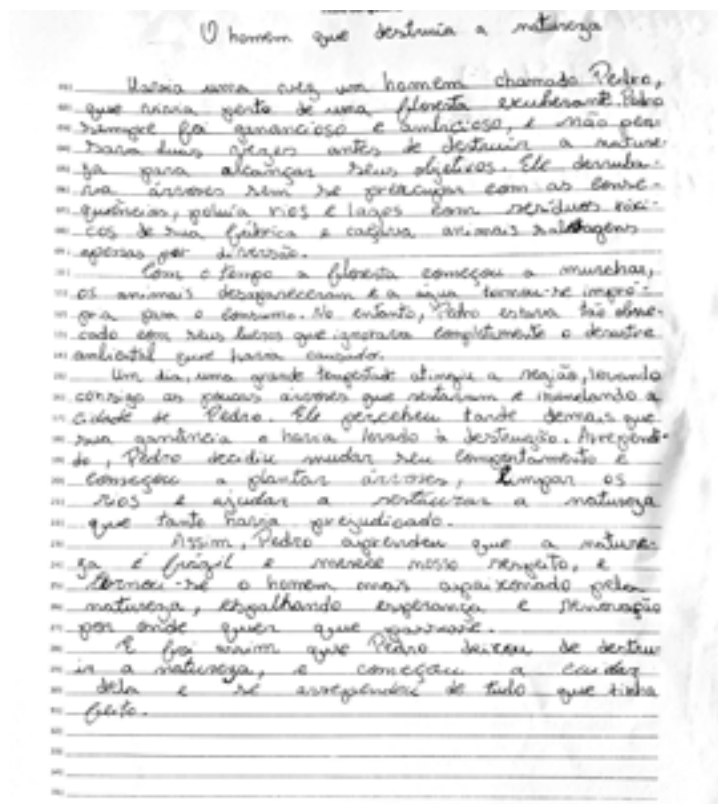 O homem que destruia a natureza
Havia uma vez um homem chamado Pedro,
que vivia perto de uma floresta exuberante. Pedro
sempre foi ganancioso e ambicioso, e não pen
sava duas vezes antes de destruir a nature
za para alcançar seus objetivos. Ele derruba-
va árvores sem se preocupar com as conse-
quências, poluía rios e lagos com resíduos tóxi-
cos de sua fábrica e caçava animais selvagens
apenas por diversão.
Com o tempo a floresta começou a murchar,
os animais desapareceram e a água tornou-se impró-
pria para o consumo. No entanto, Pedro estava tão obce-
cado com seus lucros que ignorava completamente o desastre
ambiental que havia causado.
Um dia, uma grande tempestade atingiu a região, levando
consigo as poucas árvores que restavam e inundando a
cidade de Pedro. Ele percebeu tarde demais que
sua ganância o havia levado à destruição. Arrependi-
do, Pedro decidiu mudar seu comportamento e
começou a plantar árvores, limpar os
rios e ajudar a restaurar a natureza
que tanto havia prejudicado.
Assim, Pedro aprendeu que a nature-
za é frágil e merece nosso respeito, e
tornou-se o homem mais apaixonado pela
natureza, espalhando esperança e renovação
por onde quer que passasse.
E foi assim que Pedro deixou de destru
ir a natureza, e começou a cuidar
dela e se arrependeu de tudo que tinha
feito.